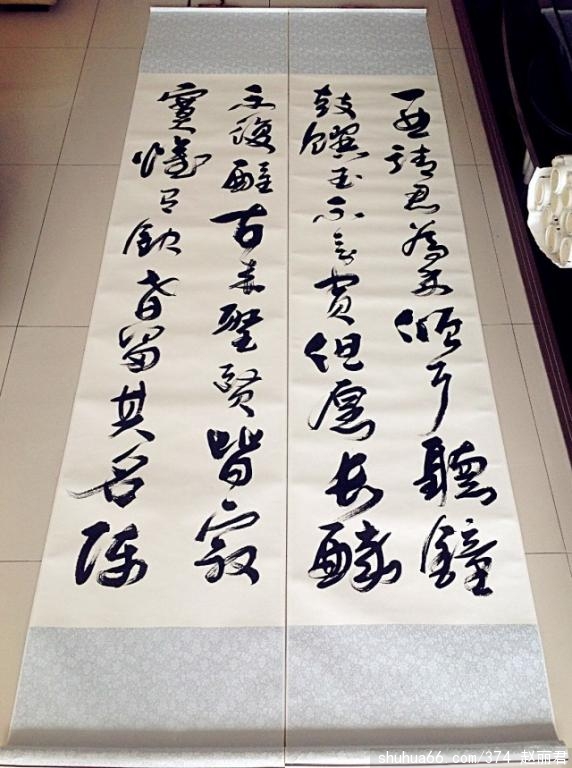 曲請君為我傾耳聽鐘
鼓饌玉不足貴但愿長醉
不復醒古來聖賢皆寂
寞惟有飲者留其名陳
shuhua66.com/374 赵丽君